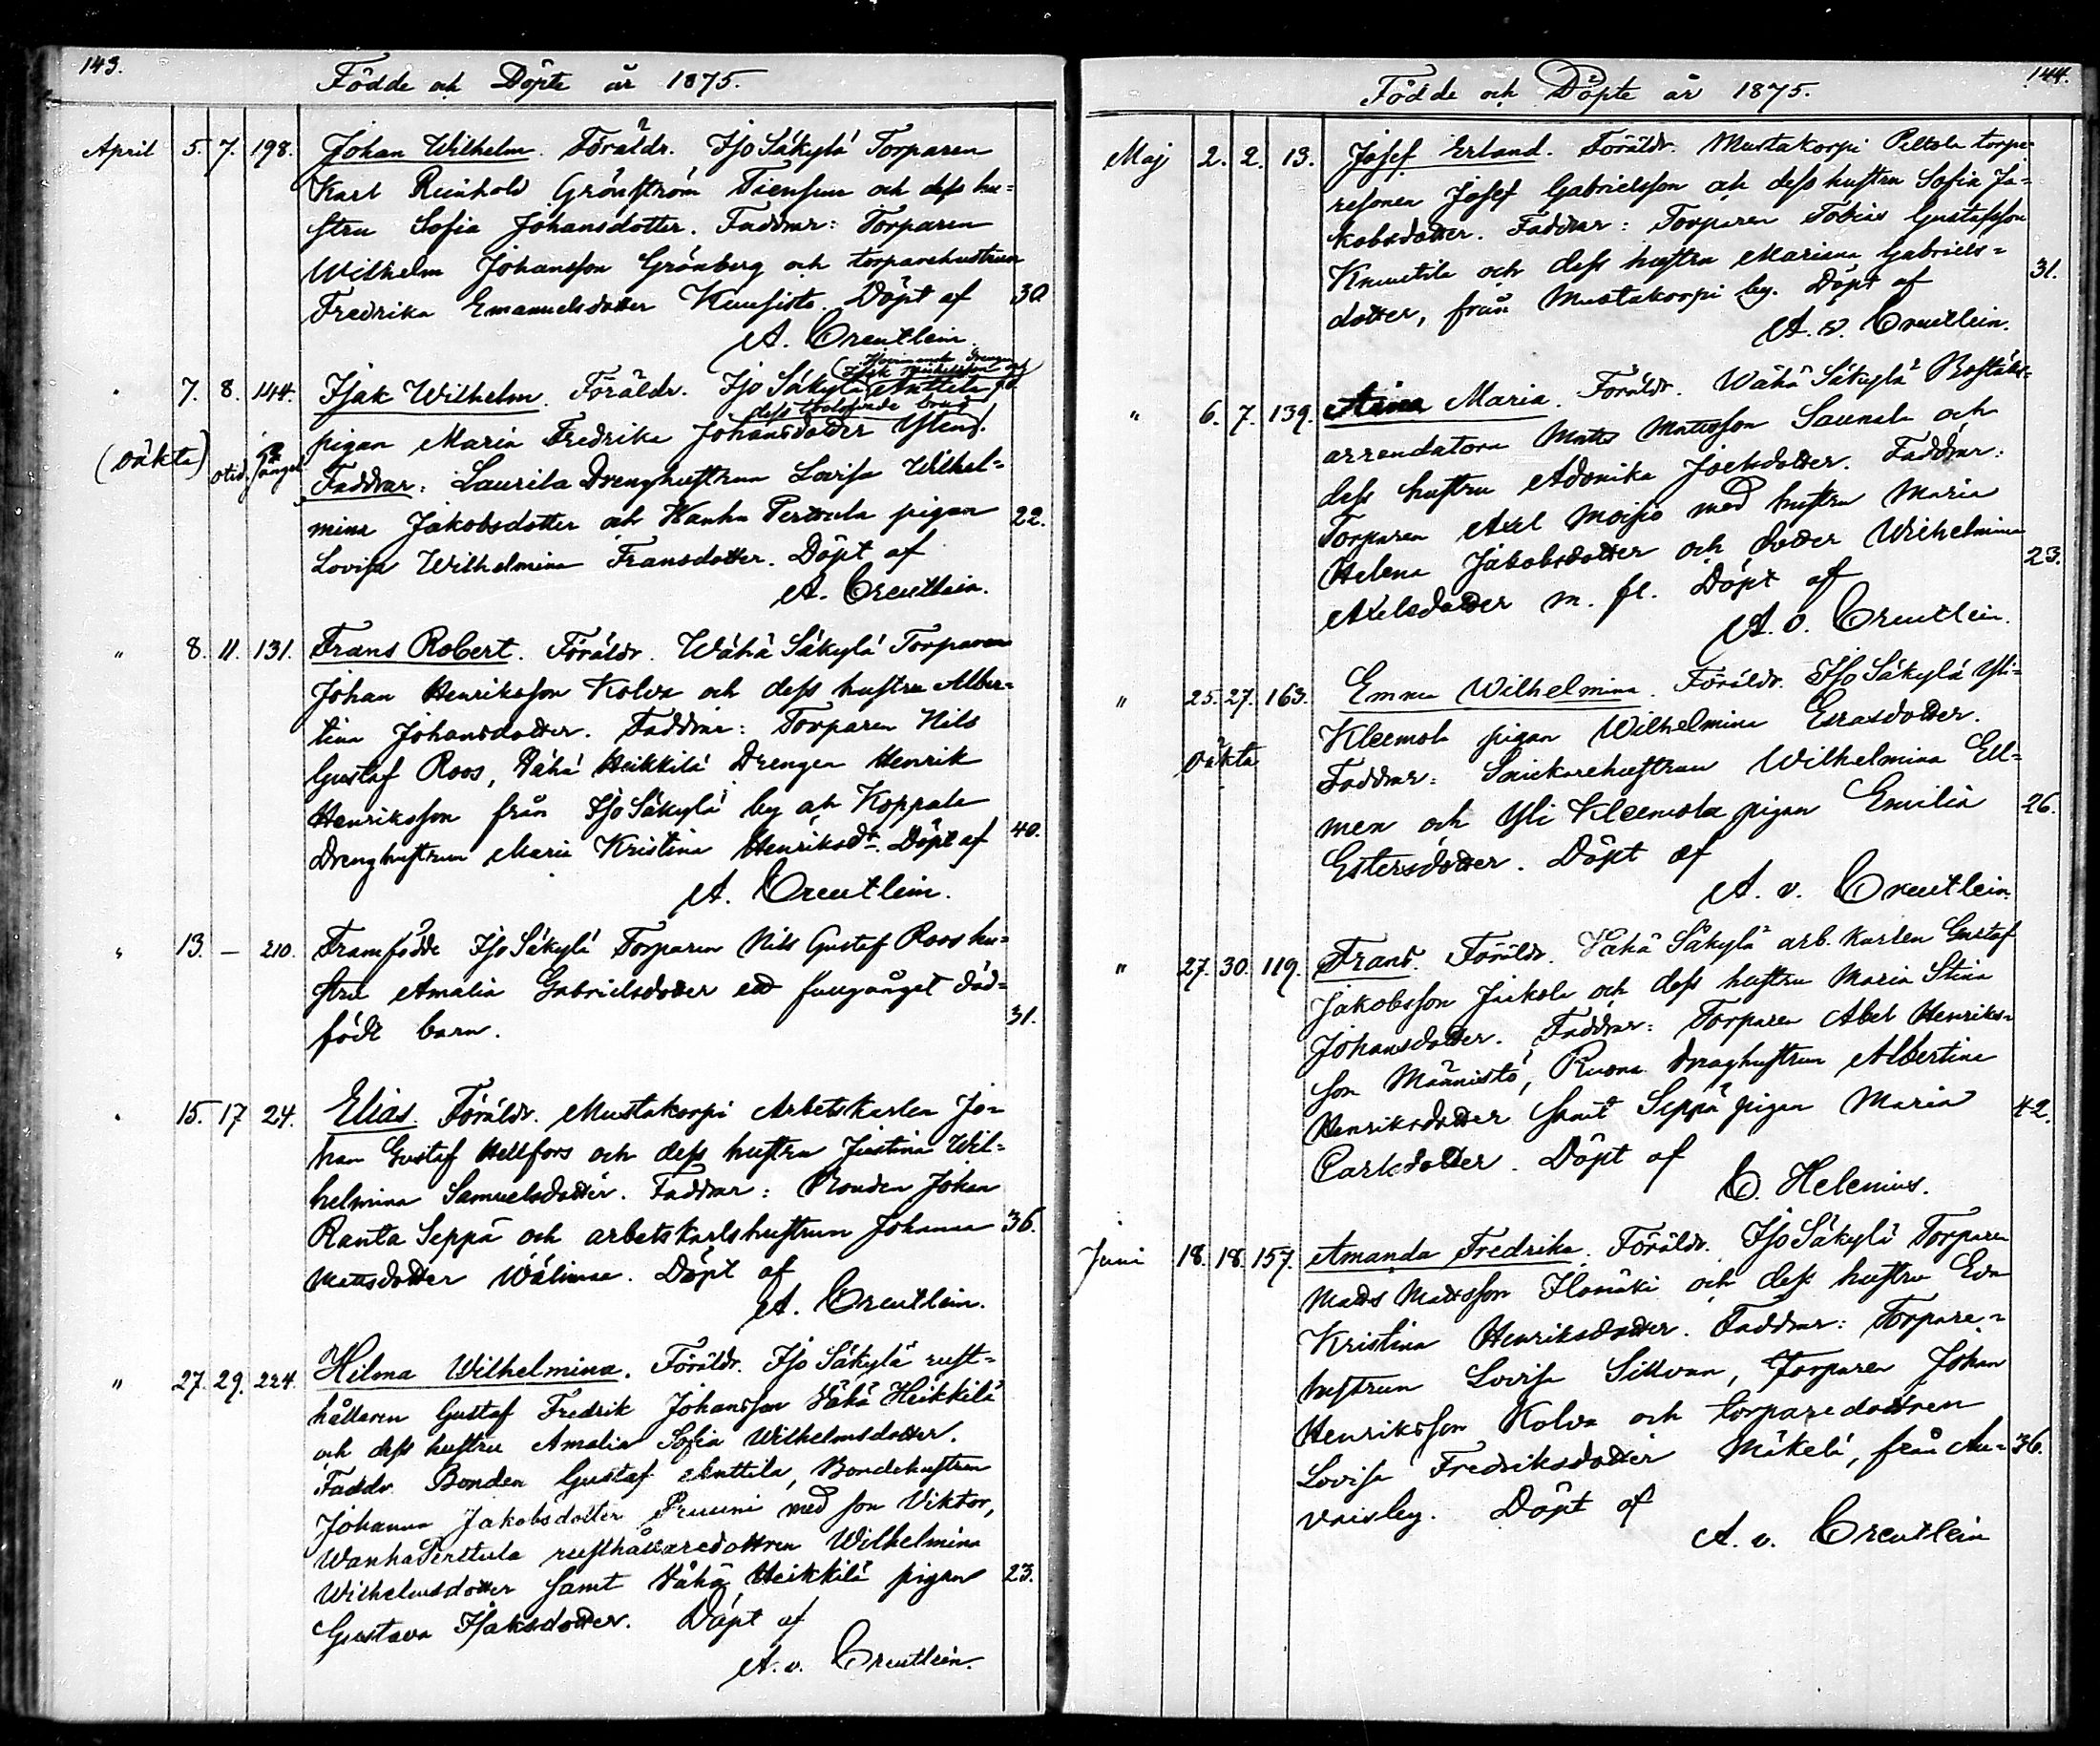 143.
Födde och Döpte år 1875.
April 5. 7. 198. Johan Wilhelm. Föräldr. Iso Säkylä Torparen
Karl Reinhold Grönström Tiensuu och dess hu=
stru Sofia Johansdotter. Faddrar: Torparen
Wilhelm Johansson Grönberg och torparehustrun
Fredrika Emanuelsdotter Kuusisto. Döpt af 30.
A. Creutlein.
" 7. 8. 144. Isak Wilhelm. Föräldr. Iso Säkylä Anttila
pigan Maria Fredrika Johansdotter
(oäkta) Faddrar: Laurila Drenghustrun Lovisa Wilhel=
mina Jakobsdotter och Wanha Perttula pigan 22.
Lovisa Wilhelmina Fransdotter. Döpt af
A. Creutlein.
" 8. 11. 131. Frans Robert. Föräldr. Wähä Säkylä Torparen
Johan Henriksson Kolva och dess hustru Alber=
tina Johansdotter. Faddrar: Torparen Nils
Gustaf Roos, Vähä Heikkilä Drengen Henrik
Henriksson från Iso Säkylä by och Koppala
Drenghustrun Maria Kristina Henriksdr. Döpt af 40.
A. Creutlein.
" 13. — 210. Framfödde Iso Säkylä Torparen Nils Gustaf Roos hu=
stru Amalia Gabrielsdotter ett fullgånget död=
födt barn. 31.
" 15. 17 24. Elias. Föräldr. Mustakorpi Arbetskarlen Jo=
han Gustaf Hellfors och dess hustru Justina Wil=
helmina Samuelsdotter. Faddrar: Bonden Johan
Ranta Seppä och arbetskarlshustrun Johanna 36.
Mattsdotter Wälimaa. Döpt af
A. Creutlein.
" 27. 29. 224. Hilma Wilhelmina. Föräldr. Iso Säkylä rust=
hållaren Gustaf Fredrik Johansson Vähä Heikkilä
och dess hustru Amalia Sofia Wilhelmsdotter.
Faddr. Bonden Gustaf Anttila, Bondehustrun
Johanna Jakobsdotter Pruuni med son Viktor,
Wanha Perttula rusthållaredottren Wilhelmina
Wilhelmsdotter samt Vähä Heikkilä pigan 23.
Gustava Isaksdotter. Döpt af
A. v. Creutlein.
144.
Födde och Döpte år 1875.
Maj 2. 2. 13. Josef Erland. Föräldr. Mustakorpi Peltola torpa=
resonen Josef Gabrielsson och dess hustru Sofia Ja=
kobsdotter. Faddrar: Torparen Tobias Gustafsson
Knuutila och dess hustru Mariana Gabriels= 31.
dotter, från Mustakorpi by. Döpt af
A. v. Creutlein.
" 6. 7. 139. Maria. Föräldr. Wähä Säkylä Boställs=
arrendatorn Matts Mattsson Saunala och
dess hustru Adonika Joelsdotter. Faddrar:
Torparen Axel Moisio med hustru Maria
Helena Jakobsdotter och dotter Wilhelmina 23.
Axelsdotter m. fl. Döpt af
A. v. Creutlein.
" 25. 27. 163. Emma Wilhelmina. Föräldr. Iso Säkylä Yli=
Kleemola pigan Wilhelmina Esrasdotter.
oäkta Faddrar: Snickarehustrun Wilhelmina Ell=
men och Yli Kleemola pigan Emilia 26.
Estersdotter. Döpt af
A. v. Creutlein.
" 27. 30. 119. Frans. Föräldr. Vähä Säkylä arb. karlen Gustaf
Jakobsson Jaakola och dess hustru Maria Stina
Johansdotter. Faddrar: Torparen Abel Henriks=
son Männistö, Ruona drenghustrun Albertina
Henriksdotter samt Seppä pigan Maria 42.
Carlsdotter. Döpt af
C. Helenius.
Juni 18. 18. 157. Amanda Fredrika. Föräldr. Iso Säkylä Torparen
Matts Mattsson Ilomäki och dess hustru Eva
Kristina Henriksdotter. Faddrar: Torpare=
hustrun Lovisa Sillvan, Torparen Johan
Henriksson Kolva och torparedottren
Lovisa Fredriksdotter Mäkelä, från An= 36.
vaisby. Döpt af
A. v. Creutlein